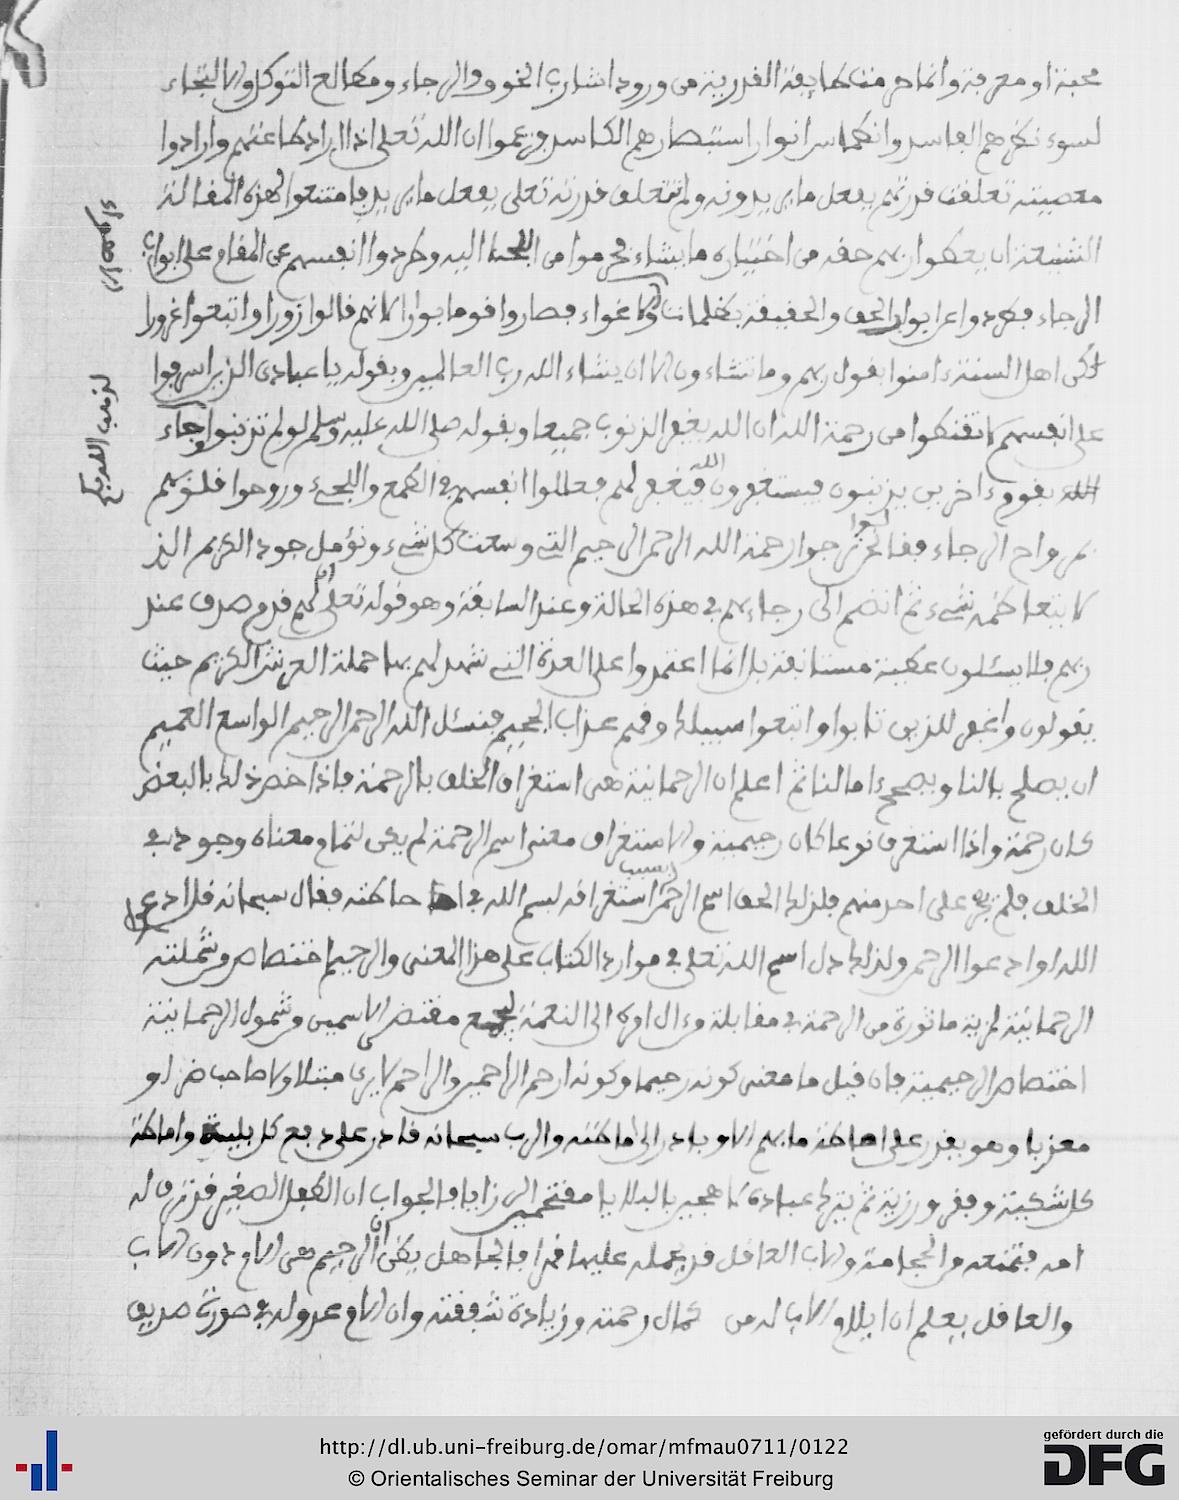 محبة او معرفة وانما حرمت طايفة القدرية من ورود مشارب الخوف والرجاء ومطالع التوكل والالتجاء
لسوء نظرهم الفاسد وانطماس انوار استبصارهم الكاسد فزعموا ان الله تعلى اذا اراد طاعتهم وارادوا
معصيته تعلقت قدرتهم بفعل ما يريدونه ولم تتعلق قدرته تعلى بفعل ما يريد فامتنعوا لهذه المقالة
الشنيعة ان يعطوا ربهم حقه من اختياره ما يشاء فحرموا من اللجا اليه وطردوا انفسهم عن المقام على ابواب
الرجاء فطردوا عن ابواب الحق والحقيقة بظلمات الاغواء فصاروا قوما بورا لانهم قالوا زورا واتبعوا غرورا
لكن اهل السنة ءامنوا بقول ربهم وما تشاءون الا ان يشاء الله رب العالمين وبقوله يا عبادي الذين اسرفوا
على انفسهم لا تقنطوا من رحمة الله ان الله يغفر الذنوب جميعا وبقوله صلى الله عليه وسلم لو لم تذنبوا لجاء
الله بقوم ءاخرين يذنبون فيستغفرون الله فيغفر لهم فعللوا انفسهم في الطمع واللجء وروحوا قلوبهم
بمرواح الرجاء فقالوا نحن نرجوا رحمة الله الرحمن الرحيم التي وسعت كل شيء ونؤمل جود الكريم الذي
لا يتعاظمه شيء ثم انضم الى رجاءهم في هذه الحالة وعد السابقة وهو قوله تعلى ان لهم قدم صدق عند
ربهم فلا يسئلون عطية مستانفة بل انما اعتمدوا على العدة التي شهد لهم بها حملة العرش الكريم حيث
يقولون واغفر للذين تابوا واتبعوا سبيلك وقهم عذاب الجحيم فنسئل الله الرحمن الرحيم الواسع العميم
ان يصلح بالنا ويصحح ءامالنا ثم اعلم ان الرحمانية هى استغراق الخلق بالرحمة فاذا خص ذلك بالبعض
كان رحمة واذا استغرق نوعا كان رحيمية والاستغراق معنى اسم الرحمة لم يكن لتمام معناه وجود في
الخلق فلم يجر على احد منهم فلذلك الحق اسم الرحمن بسبب استغراقه لسم الله في احاطته فقال سبحانه قل ادعوا
الله او ادعوا الرحمن ولذلك دل اسم الله تعلى في موارد الكتاب على هذا المعنى والرحيم اختصاص وشملته
الرحمانية لمزية ماثورة من الرحمة في مقابلة وءال امره الى النعمة ليجمع مقتضى الاسمين وشمول الرحمانية
اختصاص الرحيمية فان قيل ما معنى كونه رحيما وكونه ارحم الراحمين والراحم لا يرى مبتلا ولا صاحب ضر او
معذبا وهو يقدر على اماطة ما بهم الا وبادر الى اماطته والرب سبحانه قادر على دفع كل بلية واماطة
كل شكية وفقر ورزية ثم يترك عباده طافحين بالبلايا مقتحمين الرزايا فالجواب ان الطفل الصغير قد ترق له
امه فتمنعه من الحجامة والاب العاقل قد يحمله عليها قهرا فالجاهل يظن ان الرحيم هى الام دون الاب
والعاقل يعلم ان ايلام الاب له من كمال رحمته وزيادة شفقته وان الام عدو له في صورة صديق